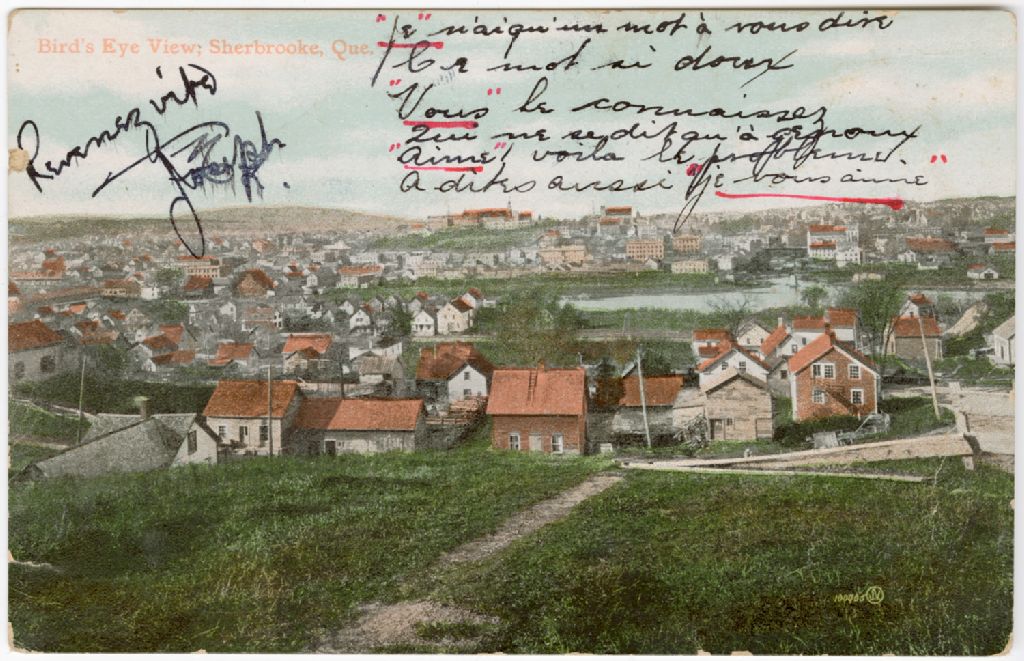 Bird's Eye View; Sherbrooke, Que.
"Je" n'ai qu'un mot à vous dire
Ce mot si doux
"Vous" le connaissez
Qui ne se dit qu'à genoux
"aime", voila le problème.
A dites aussi "je vous aime"
Revenez vite
Joseph.
100965